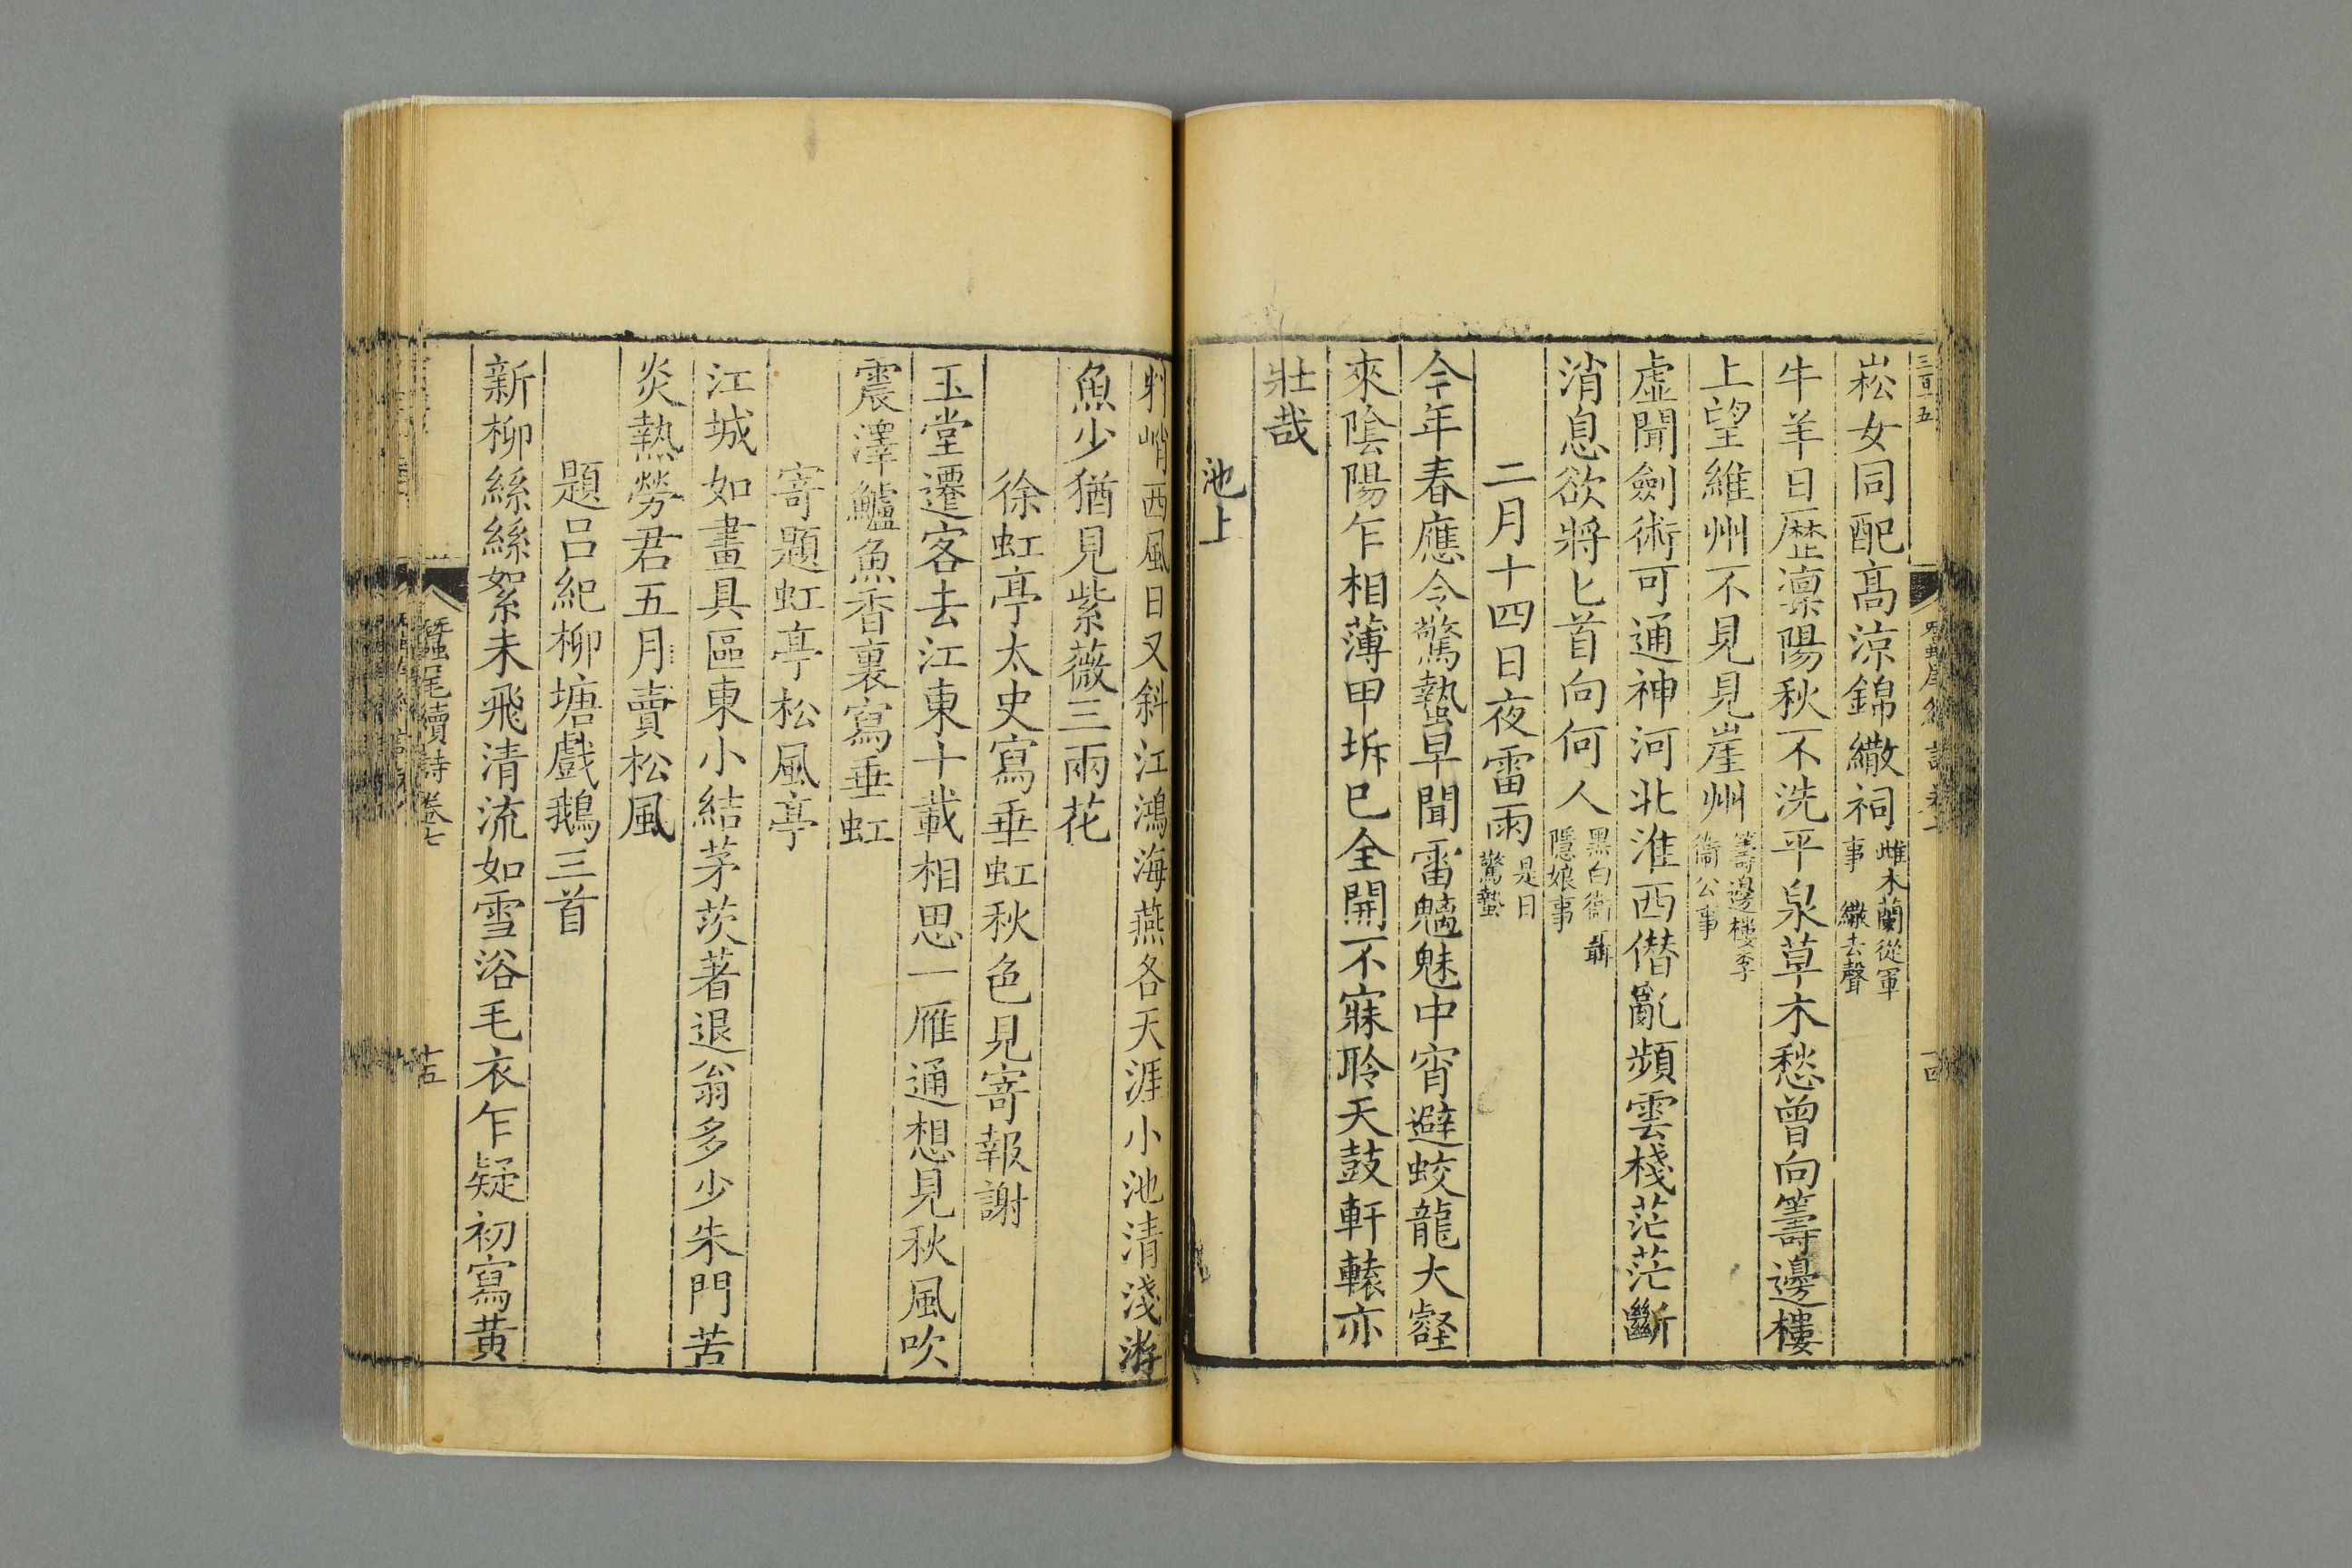 三百五
崧女同配高涼錦繖祠雌木蘭從軍事 繖去聲
牛羊日歷凜陽秋不洗平泉草木愁曾向籌邊樓
上望維州不見見崖州籌邊樓李衞公事
虛聞劍術可通神河北淮西僭亂頻雲棧茫茫斷
消息欲將匕首向何人黑白衞聶隱娘事
二月十四日夜雷雨是日驚蟄
今年春應令驚蟄早聞雷魑魅中宵避蛟龍大壑
來陰陽乍相薄甲坼已全開不寐聆天鼓軒轅亦
壯哉
池上
峭西風日又斜江鴻海燕各天涯小池清淺游
魚少猶見紫薇三兩花
徐虹亭太史寫垂虹秋色見寄報謝
玉堂遷客去江東十載相思一雁通想見秋風吹
震澤鱸魚香裏寫垂虹
寄題虹亭松風亭
江城如畫具區東小結茅茨著退翁多少朱門苦
炎熱勞君五月賣松風
題呂紀柳塘戲鵝三首
新柳絲絲絮未飛清流如雪浴毛衣乍疑初寫黃
蠶尾續詩卷七
十五